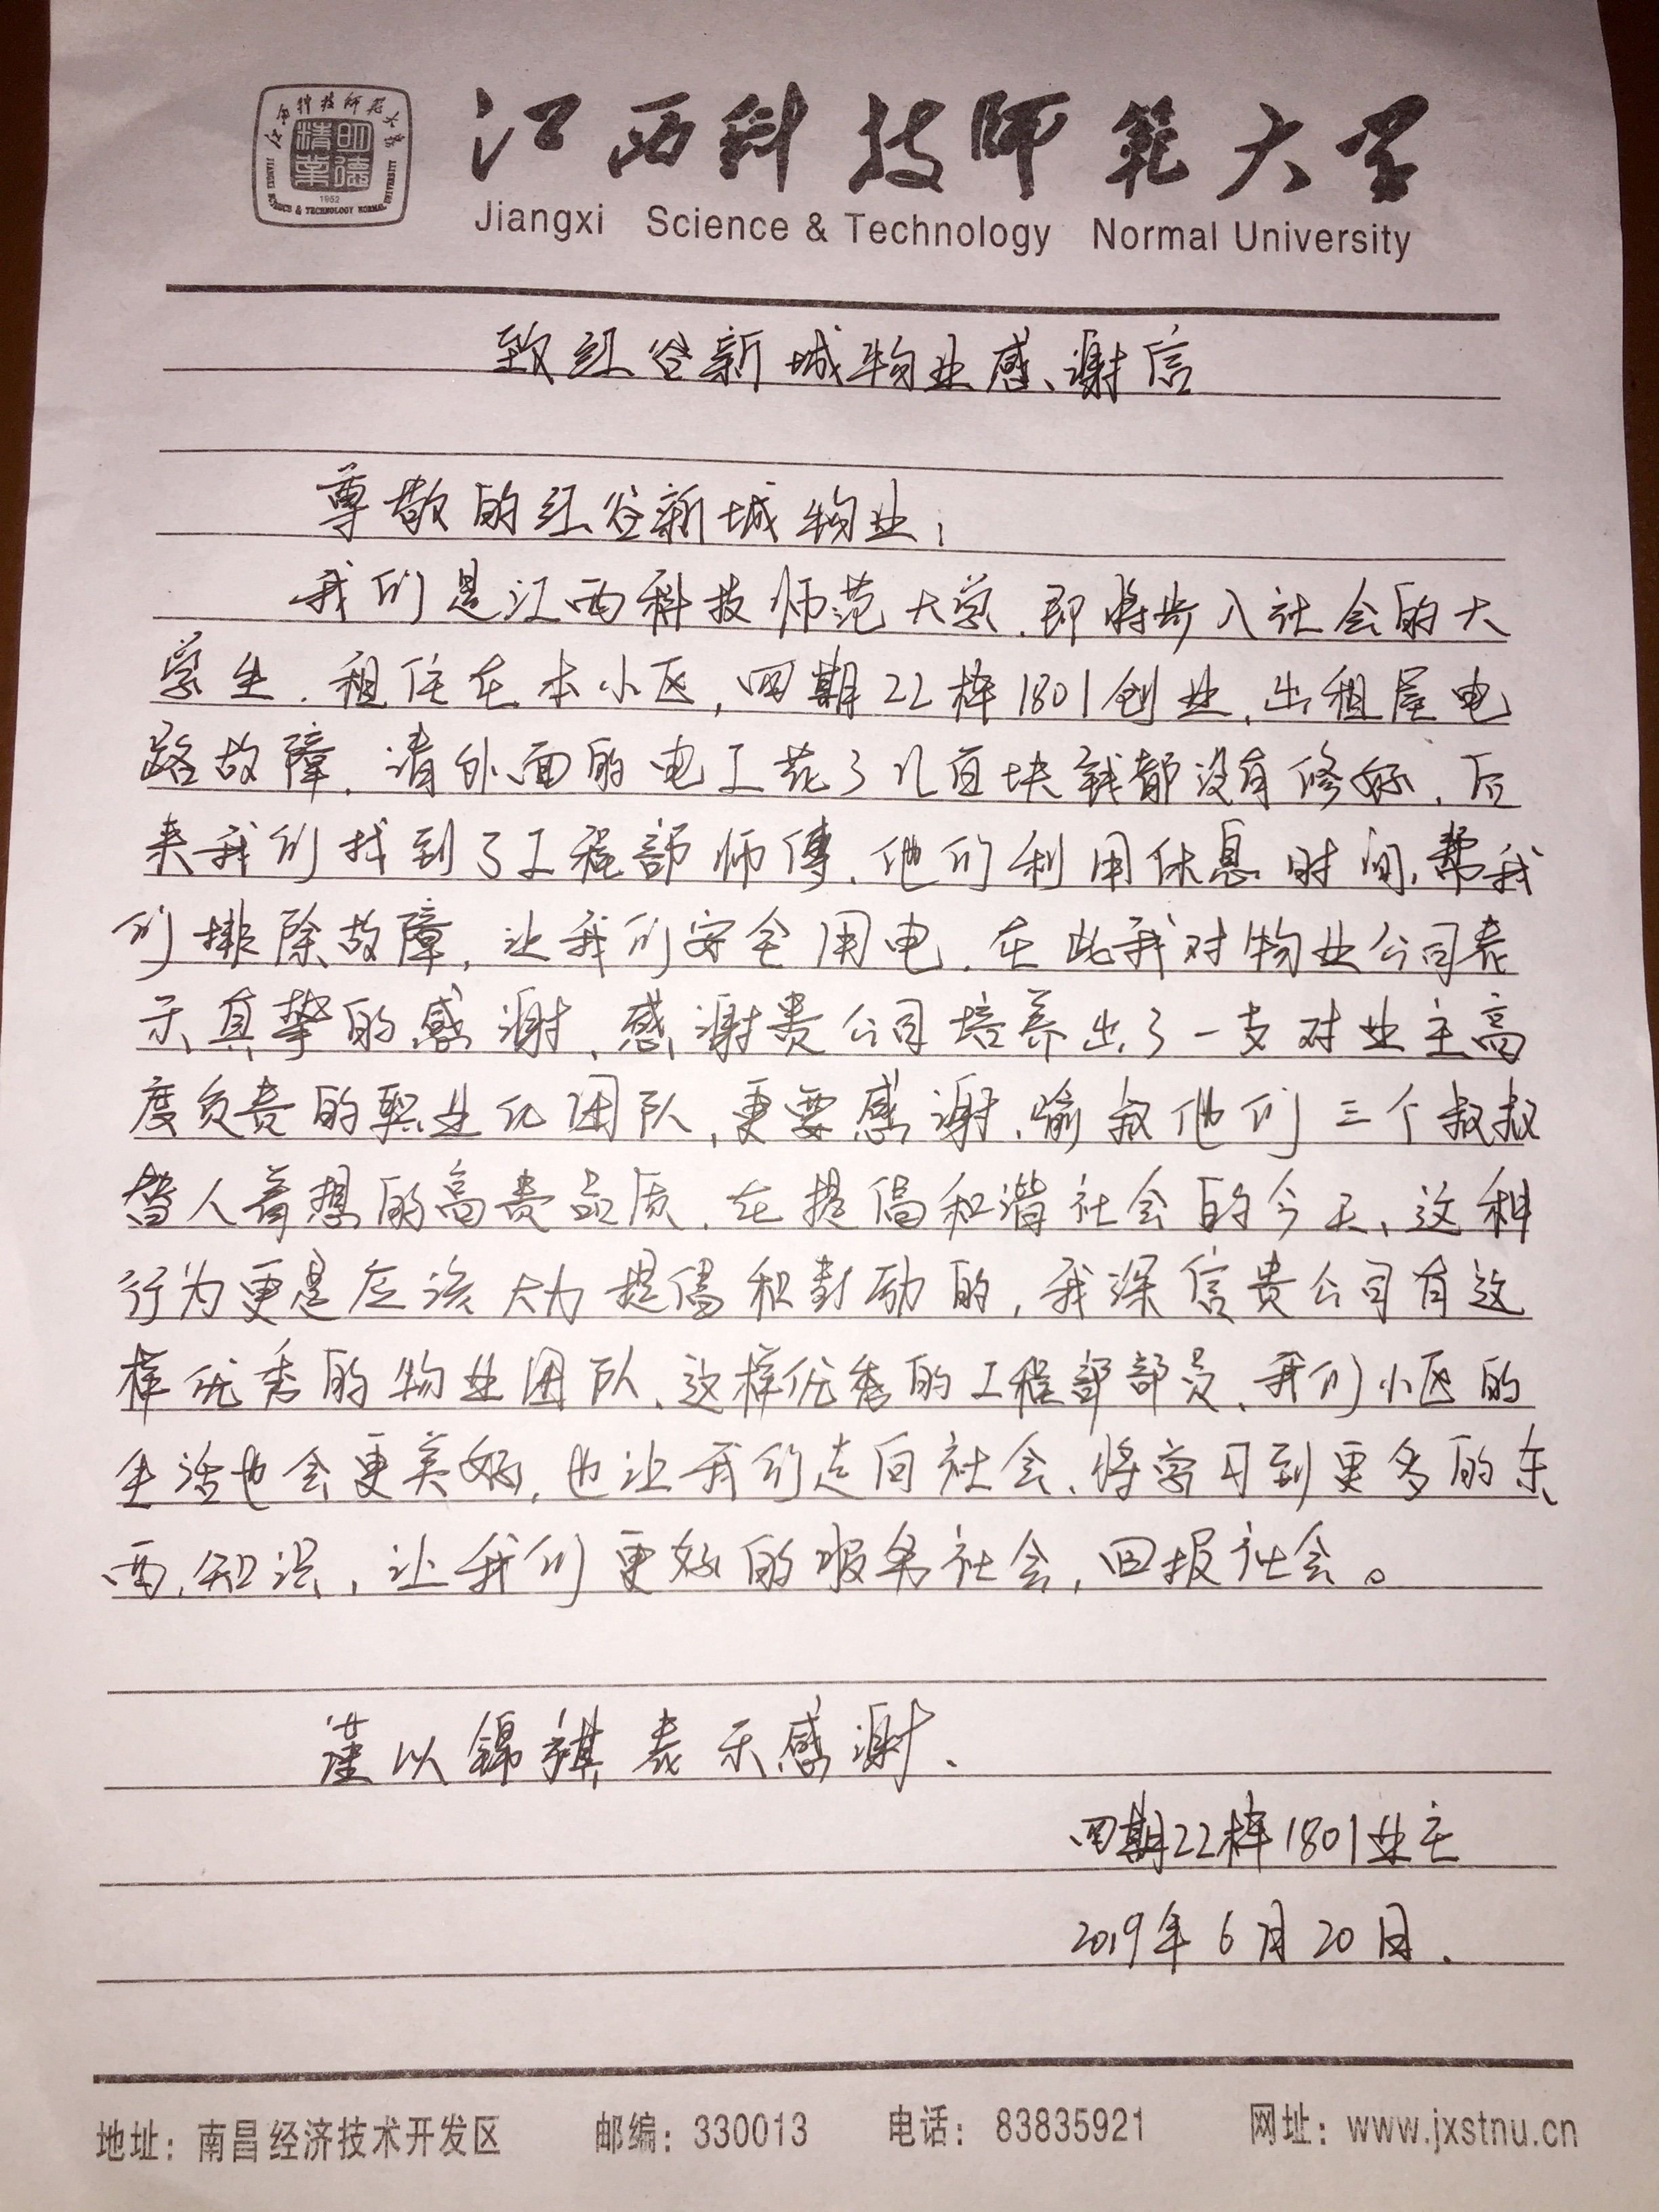 江西科技师范大学
明德
精业
1952
JIANGXI SCIENCE & TECHNOLOGY NORMAL UNIVERSITY
江西科技师範大学
Jiangxi Science & Technology Normal University
致红谷新城物业感谢信
尊敬的红谷新城物业：
我们是江西科技师范大学.即将步入社会的大
学生.租住在本小区,四期22栋1801创业,出租屋电
路故障.请外面的电工花了几百块钱都没有修好.后
来我们找到了工程部师傅.他们利用休息时间,帮我
们排除故障,让我们安全用电.在此我对物业公司表
示真挚的感谢、感谢贵公司培养出了一支对业主高
度负责的职业化团队,更要感谢.喻叔他们三个叔叔
替人着想的高贵品质.在提倡和谐社会的今天、这种
行为更是应该大力提倡和封动的,我深信贵公司有这
样优秀的物业团队、这样优秀的工程部部员、我们小区的
生活也会更美好,也让我们走向社会、将学习到更多的东
西、知识,让我们更好的服务社会,回报社会。
谨以锦祺表示感谢、
四期22栋1801业主
2019年6月20日.
地址：南昌经济技术开发区 邮编：330013 电话：83835921 网址：www.jxstnu.cn